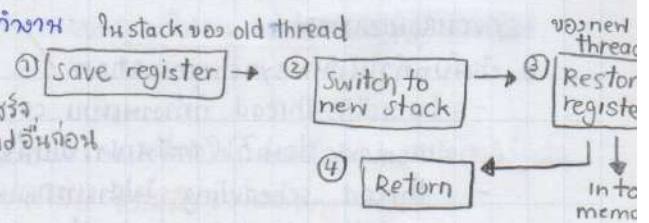 ทำงาน ในstack ของ old thread
ของ new
thread
① save register ② Switch to
new stack ③ Restor
registe
สร็จ
ad อื่นก่อน
④ Return
into
memo